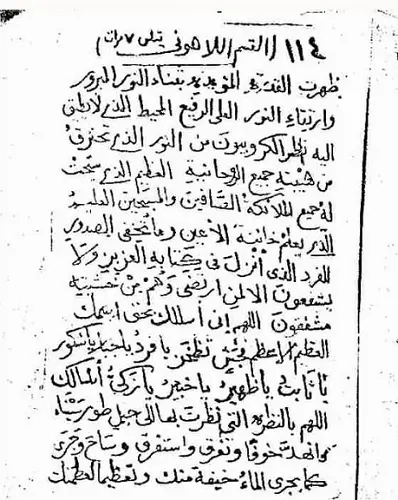 ١١٤ (القسم اللاهوتى يتلى ٧ مرات)
ظهرت القدرة المؤيدة بثناء النور المبرور
وارتقاء النور العلى الرفيع المحيط الذى لا يطيق
اليه نظر الكروبيون من النور الذى تحترق
من هيبته جميع الروحانية العظيم الذى سبحت
له جميع الملائكة الصافين والمسبحين العليم
الذى يعلم خائنة الأعين وما تخفى الصدور
الفرد الذى أنزل فى كتابه العزيز ولا
يشفعون الا لمن ارتضى وهم من خشيته
مشفقون اللهم إنى أسئلك بحق اسمك
العظيم الأعظم يا فرد يا جبار يا شكور
يا ثابت يا ظهير يا خبير يا زكى أسئالك
اللهم بالنظرة التى نظرت بها الى جبل طور سيناء
وانهد خوفا وتفرق واستفرق وساخ وجرى
كما يجرى الماء خيفة منك وتعظيما لعظمتك